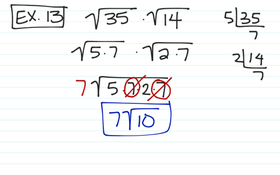 EX. 13 √35 · √14
√5·7 · √2·7
7√5·7·2·7
7√10
5 35
7
2 14
7